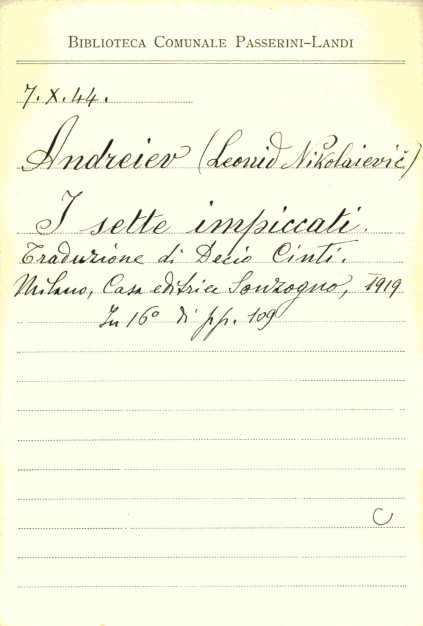 BIBLIOTECA COMUNALE PASSERINI-LANDI
7.X.44.
Andreiev (Leonid Nikolaievič)
I sette impiccati.
Traduzione di Decio Cinti.
Milano, Casa editrice Sonzogno, 1919
In 16° di pp. 109
C